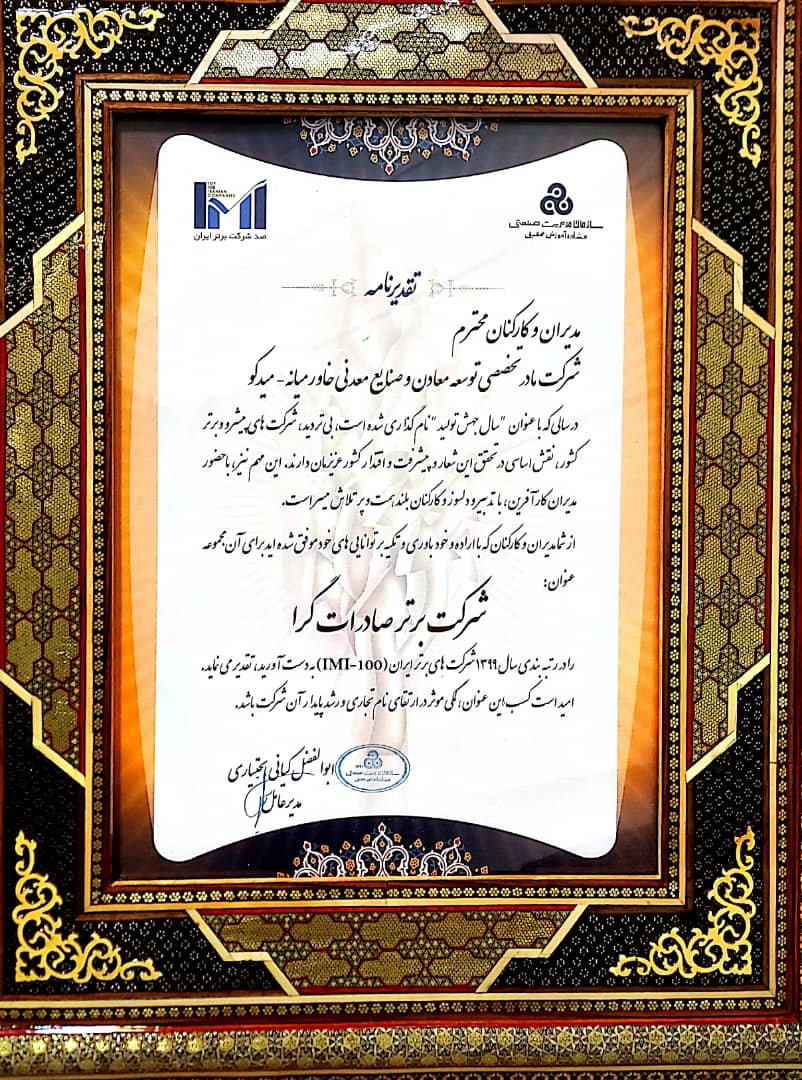 TOP
100
IRANIAN
COMPANIES
IMI
صد شرکت برتر ایران
سازمان مدیریت صنعتی
مشاوره آموزش تحقیق
تقدیرنامه
مدیران و کارکنان محترم
شرکت مادر تخصصی توسعه معادن و صنایع معدنی خاورمیانه - میدکو
در سالی که با عنوان "سال جهش تولید" نام گذاری شده است، بی تردید، شرکت های پیشرو و برتر
کشور، نقش اساسی در تحقق این شعار و پیشرفت و اقتدار کشور عزیزمان دارند. این مهم نیز، با حضور
مدیران کارآفرین، با تدبیر و دلسوز و کارکنان بلند همت و پر تلاش میسر است.
از شما مدیران و کارکنان که با اراده و خود باوری و تکیه بر توانایی های خود موفق شده اید برای آن مجموعه
عنوان:
شرکت برتر صادرات گرا
را در رتبه بندی سال ۱۳۹۹ شرکت های برتر ایران (IMI-100) به دست آورید، تقدیر می نماید.
امید است کسب این عنوان، کمکی موثر در ارتقای نام تجاری و رشد پایدار آن شرکت باشد.
ابوالفضل کیانی بختیاری
مدیرعامل
سازمان مدیریت صنعتی